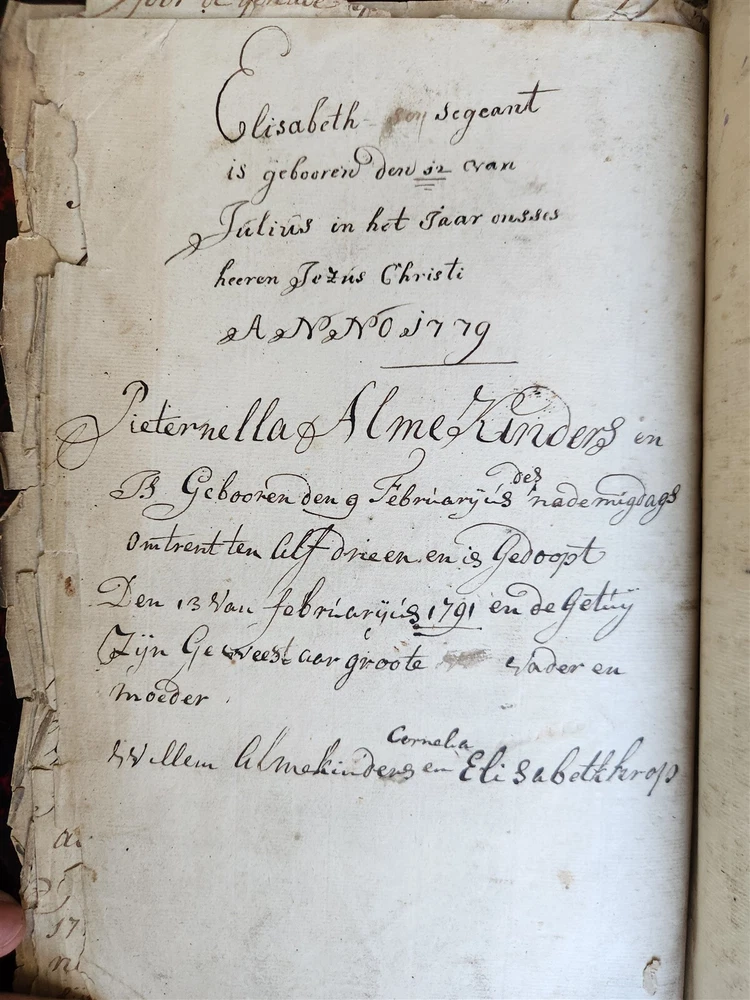 Elisabeth segeant
is gebooren den 12 van
Julius in het Jaar onsses
heeren Jezus Christi
ANNO 1779
Pieternella AlmeKinders en
Is Gebooren den 9 Februarijus des nademigdags
omtrent ten Alf drie en en is Gedoopt
Den 13 Van februarijus 1791 en de Getuy
Zijn Geweest aar groote vader en
moeder
Willem Almekinders en Cornelia Elisabeth krop